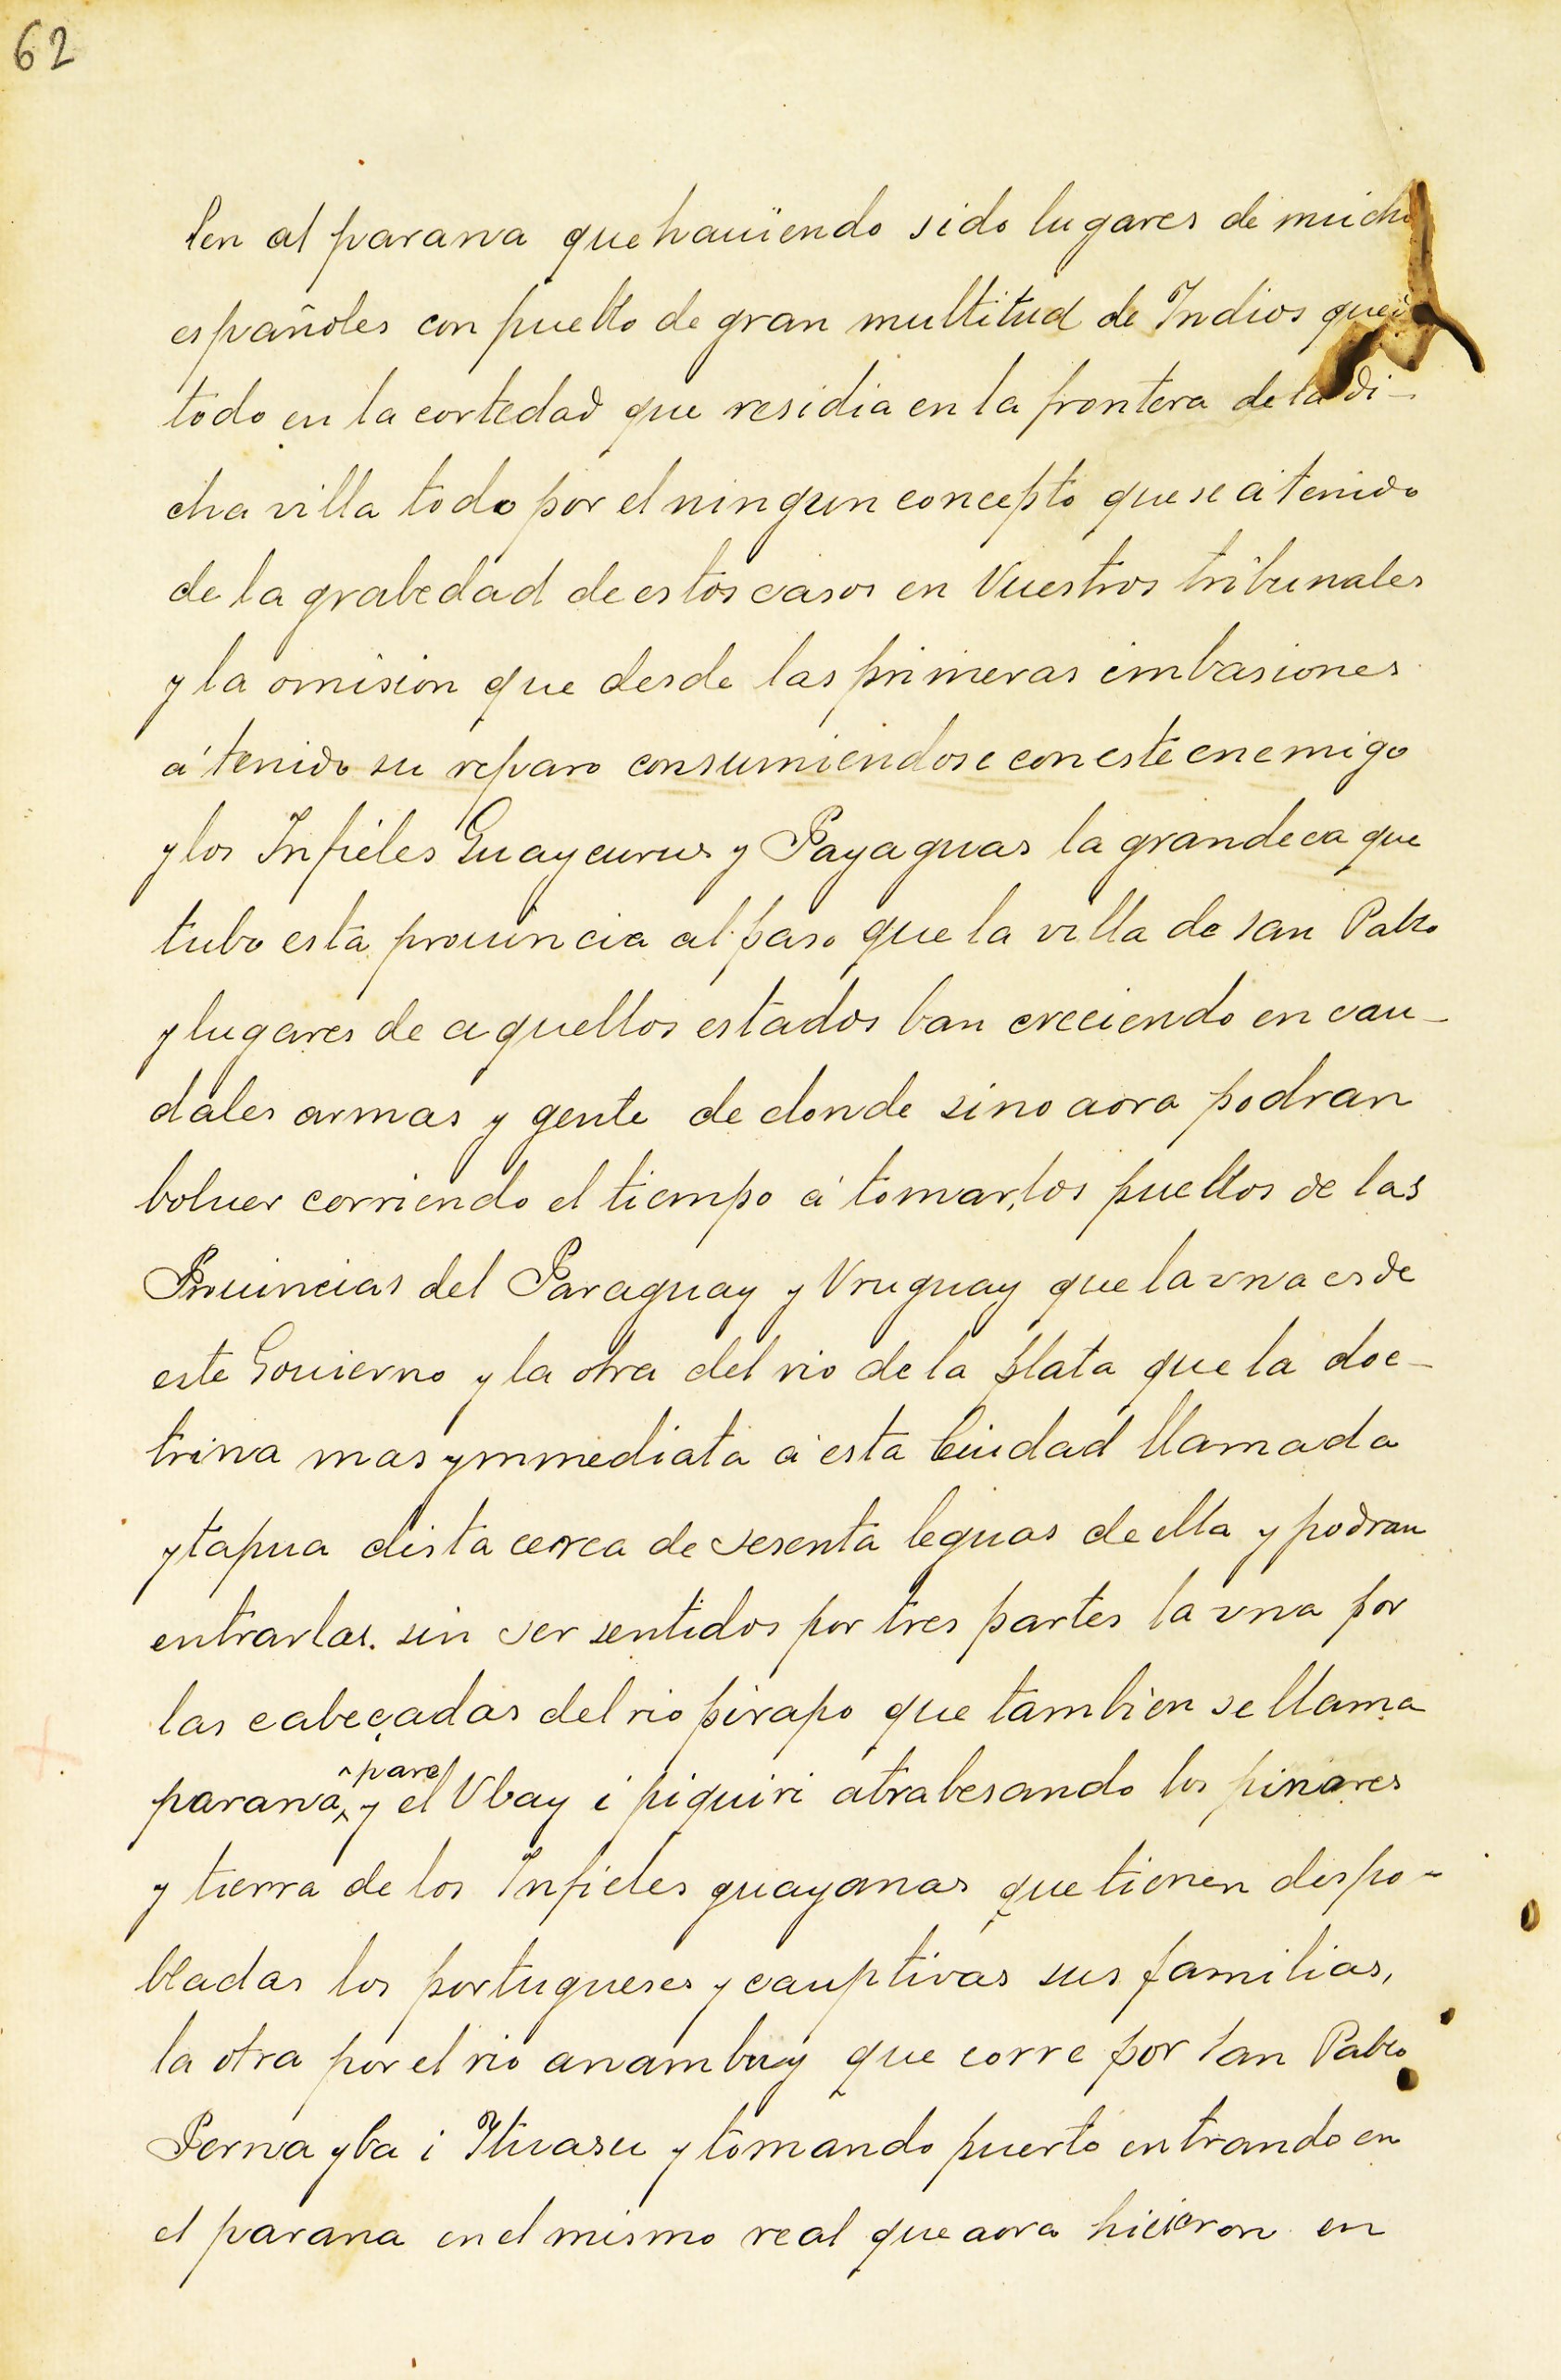 62
len al parana que hauiendo sido lugares de mucho
españoles con pueblo de gran multitud de Indios
todo en la cortedad que residia en la frontera de la di-
cha villa todo por el ningun concepto que se á tenido
de la grabedad de estos casos en Vuestros tribunales
y la omision que desde las primeras imbasiones
á tenido su reparo consumiendose con este enemigo
y los Infieles Guaycurus y Payaguas la grandeca que
tubo esta prouincia al paso que la villa de san Pablo
y lugares de aquellos estados ban creciendo en cau-
dales armas y gente de donde sino aora podran
boluer corriendo el tiempo á tomar, los pueblos de las
Prouincias del Paraguay y Vruguay que la vna es de
este Gouierno y la otra del rio de la plata que la doc-
trina mas ymmediata á esta Ciudad llamada
ytapua dista cerca de sesenta leguas de ella y podran
entrarlas. sin ser sentidos por tres partes la vna por
las cabeçadas del rio pirapo que tambien se llama
parana ^pane^ y el Vbay i piquiri atrabesando los pinares
y tierra de los Infieles guayanas que tienen despo-
bladas los portugueses y cauptivas sus familias,
la otra por el rio anambuy que corre por san Pablo
Pernayba i Ytuasu y tomando puerto entrando en
el parana en el mismo real que aora hicieron en